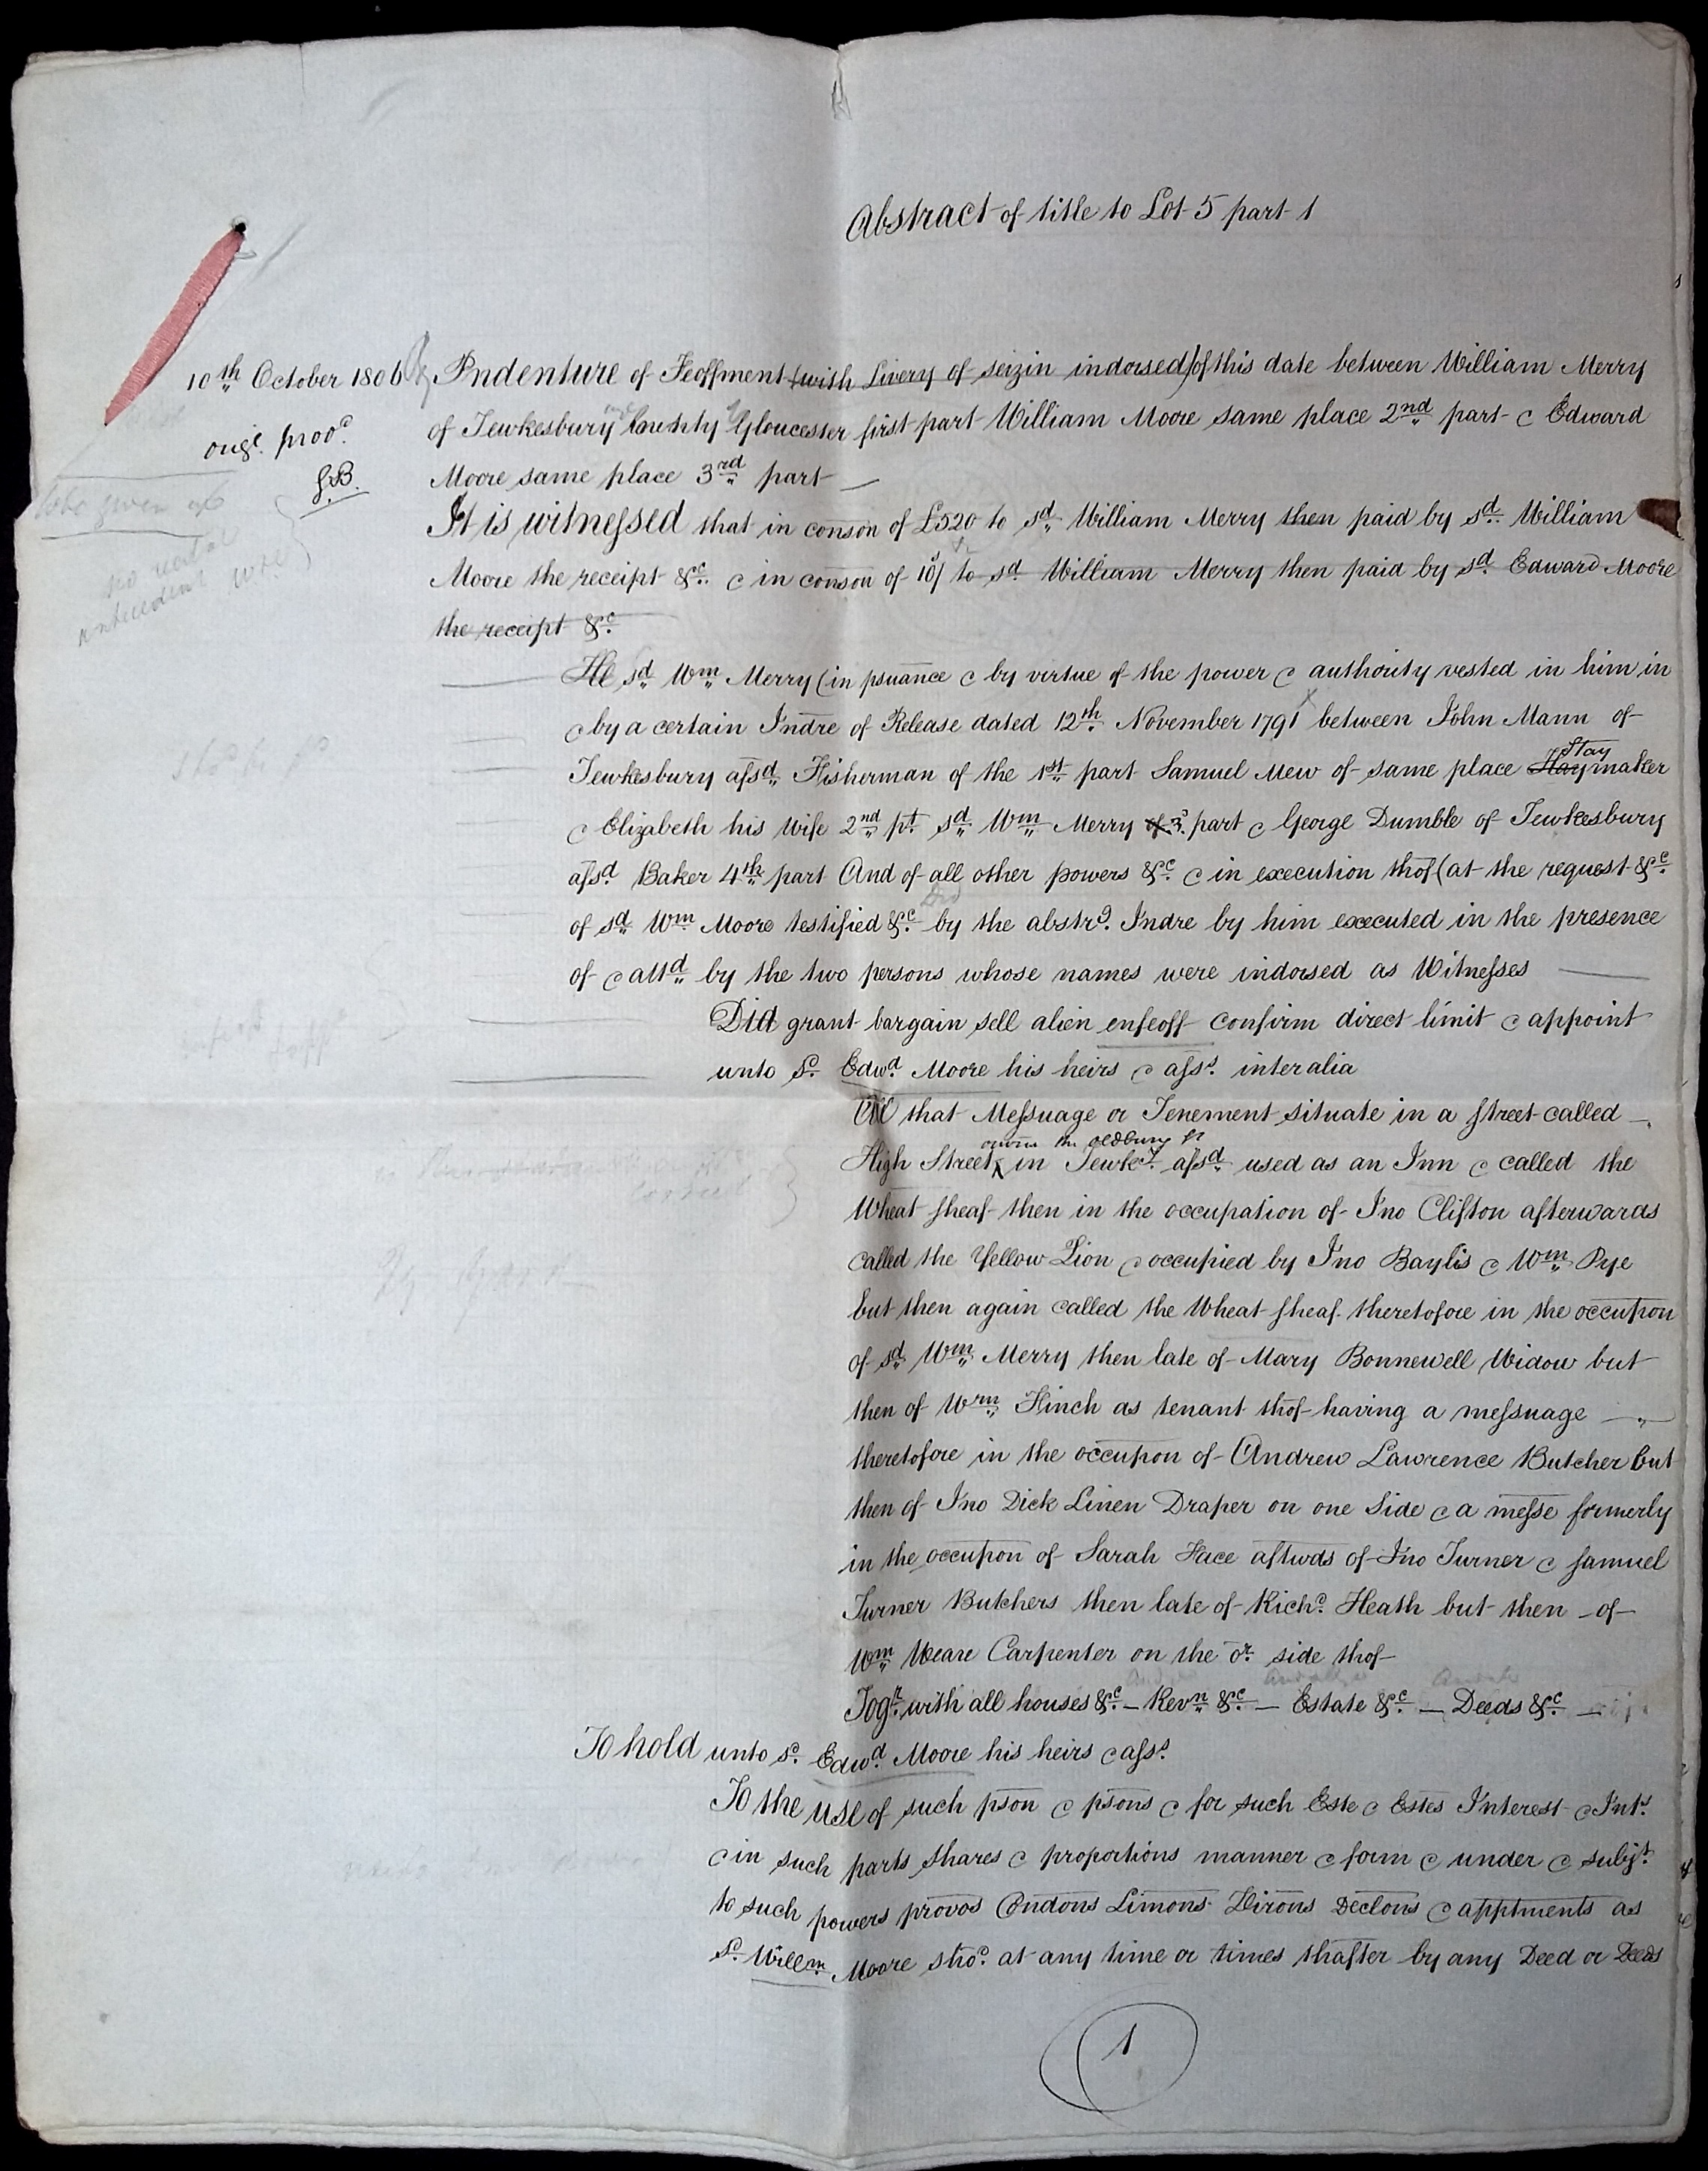 Abstract of title to Lot 5 part 1
10th October 1806
Indenture of Feoffment (with Livery of seizin indorsed) of this date between William Merry
of Tewkesbury County Gloucester first part William Moore same place 2nd part & Edward
origl. prod.
Moore same place 3rd part
It is witnessed that in conson of £520 to sd. William Merry then paid by sd. William
Moore the receipt &c. & in conson of 10/ to sd. William Merry then paid by sd. Edward Moore
the receipt &c.
He sd. Wm. Merry (in psuance & by virtue of the power & authority vested in him in
& by a certain Indre of Release dated 12th November 1791 between John Mann of
Stay
Tewkesbury afsd. Fisherman of the 1st part Samuel Mew of same place Haymaker
& Elizabeth his Wife 2nd pt. sd. Wm. Merry of 3d. part & George Dumble of Tewkesbury
afsd. Baker 4th part And of all other powers &c. & in execution thof (at the request &c.
of sd. Wm. Moore testified &c. by the abstrg. Indre by him executed in the presence
of & attd. by the two persons whose names were indorsed as Witnesses
Did grant bargain sell alien enfeoff confirm direct limit & appoint
unto sd. Edwd. Moore his heirs & afss. inter alia
All that Messuage or Tenement situate in a street called
the oldbury
High Street in Tewky. afsd. used as an Inn & called the
Wheat sheaf then in the occupation of Jno Clifton afterwards
called the Yellow Lion & occupied by Jno Baylis & Wm. Pye
but then again called the Wheat sheaf theretofore in the occupon
of sd. Wm. Merry then late of Mary Bonnewell Widow but
then of Wm. Finch as tenant thof having a messuage
theretofore in the occupon of Andrew Lawrence Butcher but
then of Jno Dick Linen Draper on one side & a messe formerly
in the occupon of Sarah Face aftwds of Jno Turner & Samuel
Turner Butchers then late of Richd. Heath but then of
Wm. Weare Carpenter on the or. side thof
Togr. with all houses &c. — Revn. &c. — Estate &c. — Deeds &c. —
To hold unto sd. Edwd. Moore his heirs & afss.
To the use of such pson & psons & for such Este & Estes Interest & Ints.
& in such parts shares & proportions manner & form & under & subjt.
to such powers provos Condons Limons Dirons Declons & apptments as
sd. Willm. Moore shod. at any time or times thafter by any Deed or Deeds
1